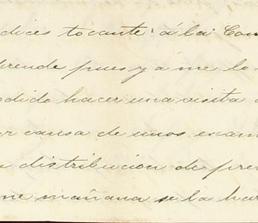 dices tocante á la Com
prende pues ya me lo
odido hacer una visita
r causa de unos exam
distribucion de pre
me mañana se la har